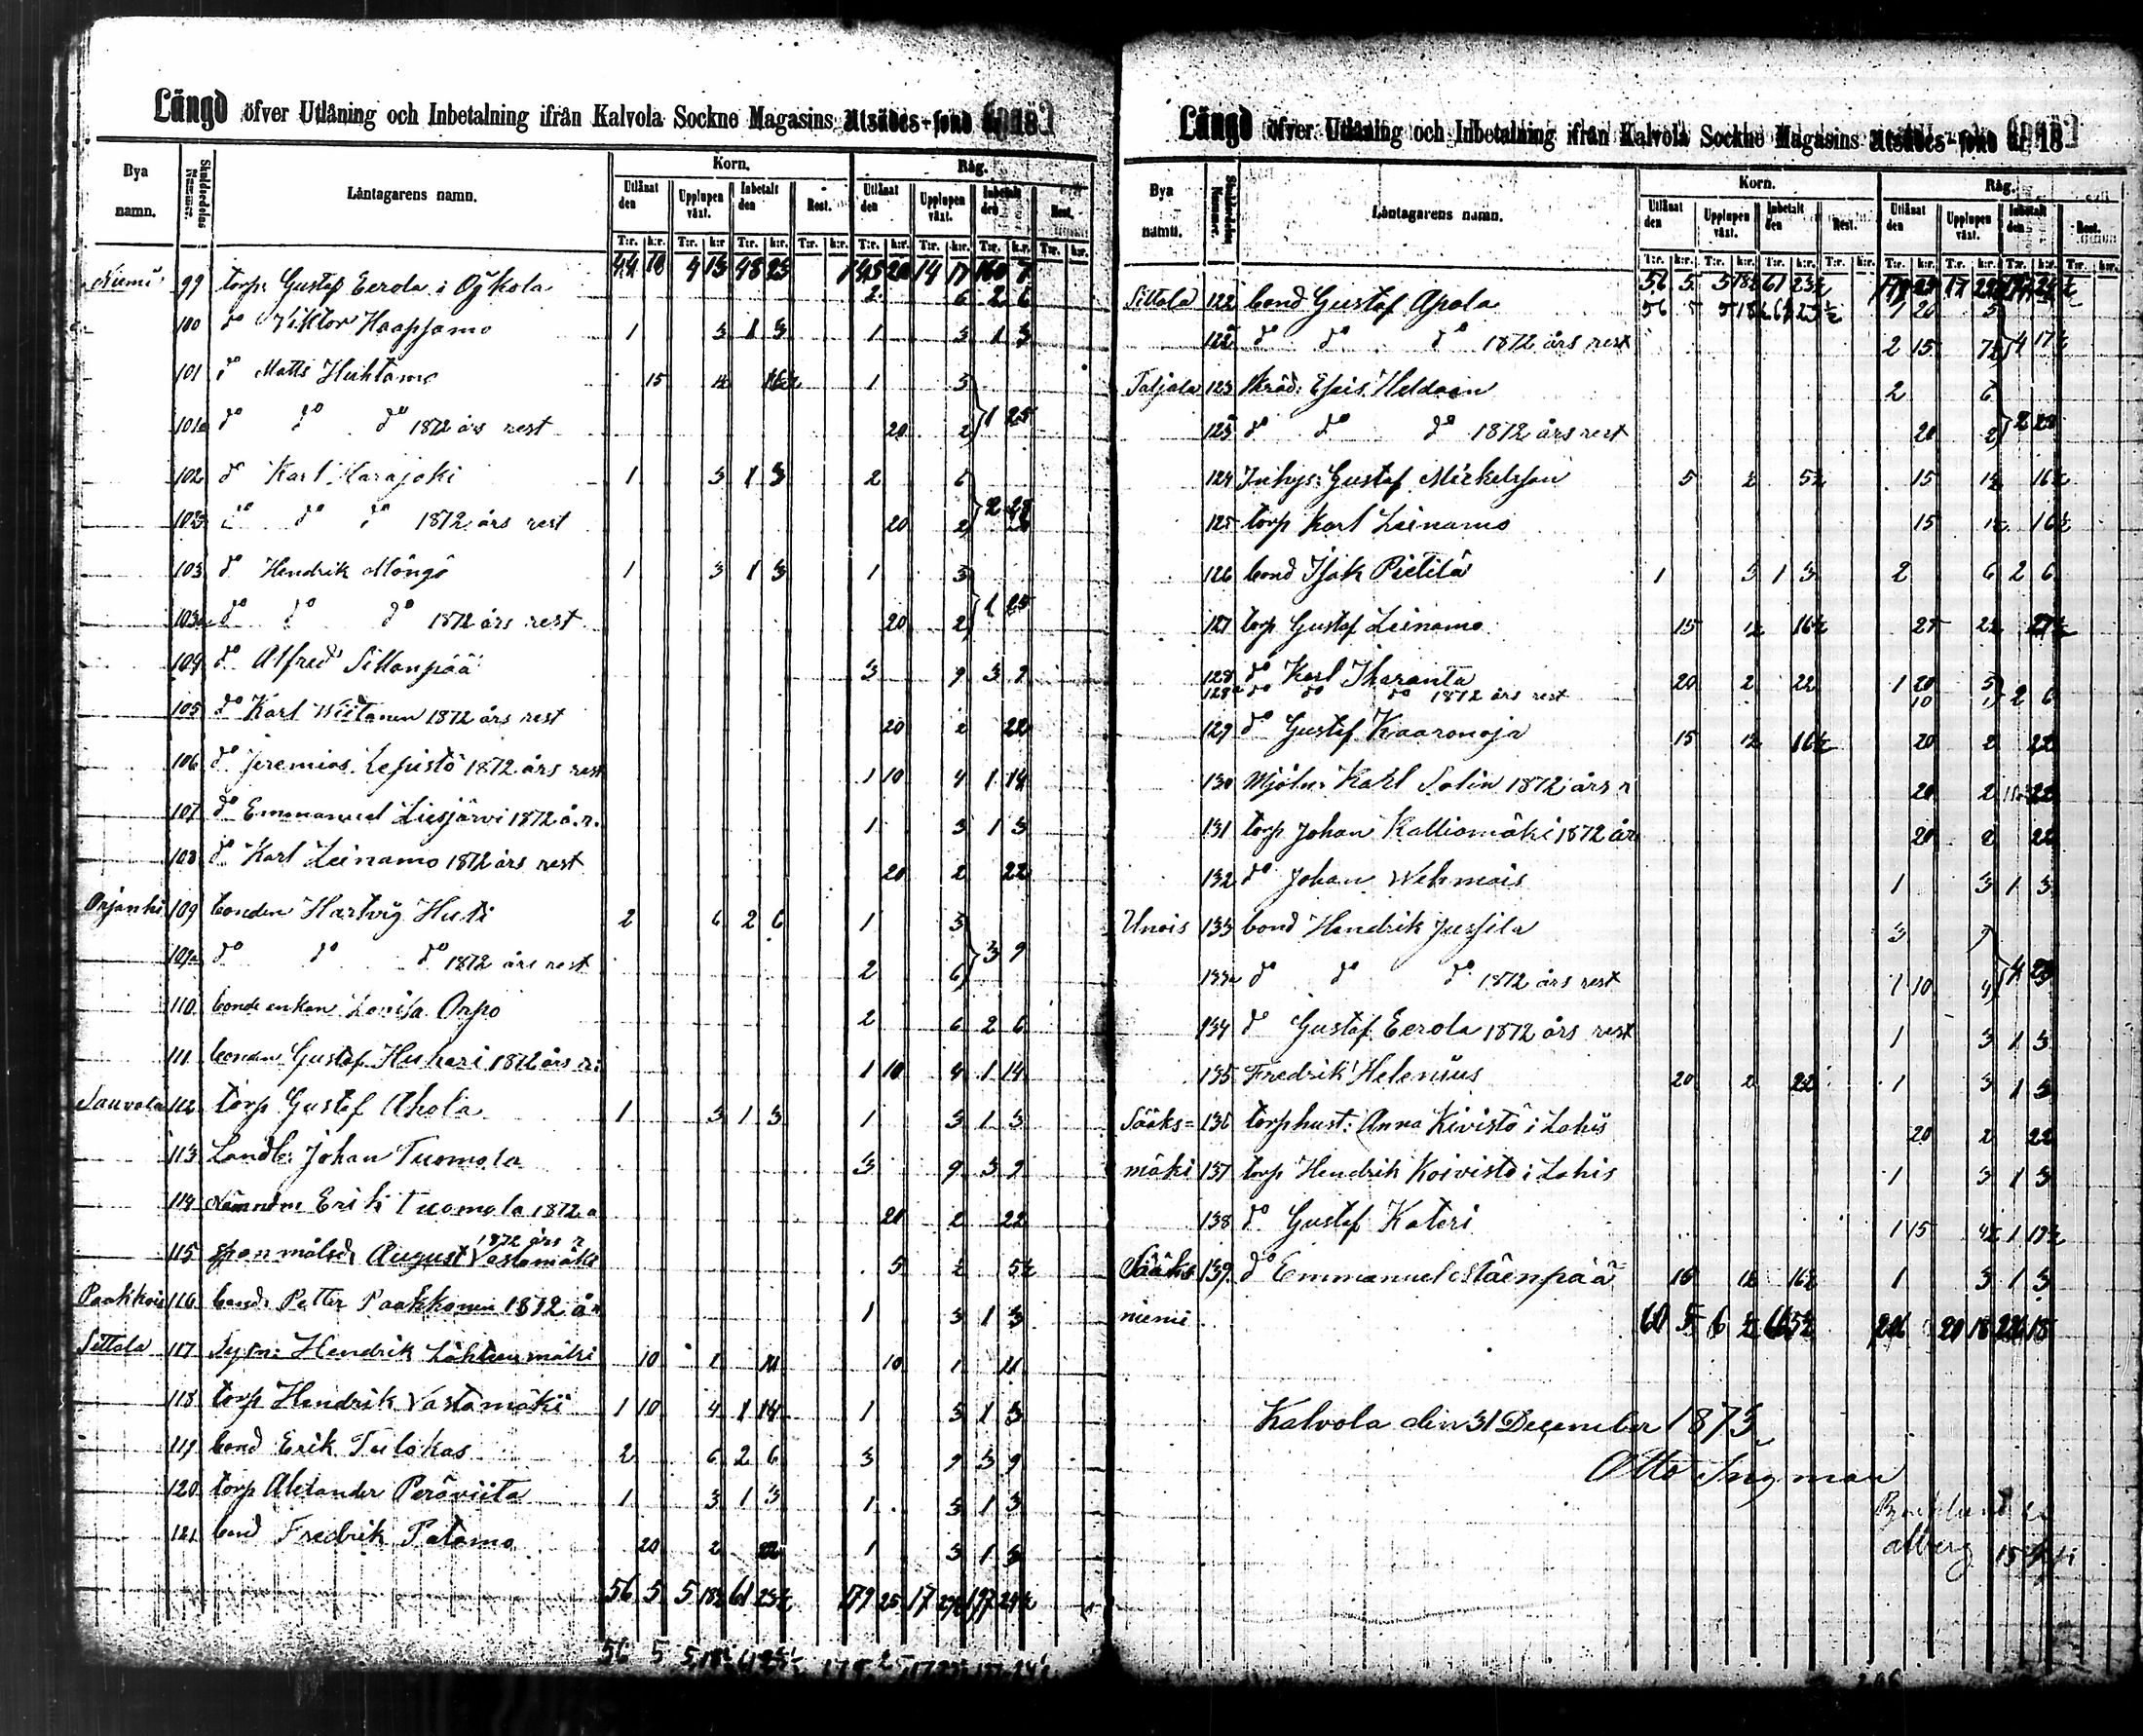 Längd öfver Utlåning och Inbetalning ifrån Kalvola Sockne Magasins Utsädes-fond år 18
Bya namn. Skuldsedelns Nummer. Låntagarens namn. Korn. Råg.
Utlånat den Upplupen växt. Inbetalt den Rest. Utlånat den Upplupen växt. Inbetalt den Rest.
T:r. k:r. T:r. k:r T:r. k:r. T:r. k:r. T:r. k:r. T:r. k:r. T:r. k:r. T:r. k:r.
44 10 4 13 48 23 145 20 14 17 160 7
Niemi 99 torp: Gustaf Eerola i Oykola 2 6 2 6
100 do Viktor Haapjamo 1 3 1 3 1 3 1 3
101 do Matts Huhtamo 15 1½ 16½ 1 3
101a do do do 1872 års rest 20 2 } 1 25
102 do Karl Harajoki 1 3 1 3 2 6
102a do do do 1872 års rest 20 2 } 2 28
103 do Hendrik Mängö 1 3 1 3 1 3
103a do do do 1872 års rest 20 2 } 1 25
104 do Alfred Sillanpää 3 9 3 9
105 do Karl Wiitanen 1872 års rest 20 2 22
106 do Jeremias Lepistö 1872 års rest 1 10 4 1 14
107 do Emmanuel Liesjärvi 1872 å.r. 1 3 1 3
108 do Karl Leinamo 1872 års rest 20 2 22
Orjanhi 109 bonden Hartvig Huti 2 6 2 6 1 3
109a do do do 1872 års rest 2 6 } 3 9
110 bonde enkan Lovisa Orpo 2 6 2 6
111 bonden Gustaf Huhari 1872 års r: 1 10 4 1 14
Sauvola 112 torp Gustaf Ahola 1 3 1 3 1 3 1 3
113 Landb: Johan Tuomola 3 9 3 9
114 Nämndm Erik Tuomola 1872 a 20 2 22
1872 års r
115 August Vastamäki 5 ½ 5½
Paakkois 116 bond: Petter Paakkonen 1872 år 1 3 1 3
Sittala 117 Hendrik Lähteenmäki 10 1 11 10 1 11
118 torp Hendrik Vastamäki 1 10 4 1 14 1 3 1 3
119 bond Erik Tulokas 2 6 2 6 3 9 3 9
120 torp Alexander Peräviita 1 3 1 3 1 3 1 3
121 bond Fredrik Patamo 20 2 22 1 3 1 3
56 5 5 18½ 61 23½ 179 25 17 29½ 197 24½
56 5 5 18½ 61 23½
Längd öfver Utlåning och Inbetalning ifrån Kalvola Sockne Magasins Utsädes-fond år 18
Bya namn. Skuldsedelns Nummer. Låntagarens namn. Korn. Råg.
Utlånat den Upplupen växt. Inbetalt den Rest. Utlånat den Upplupen växt. Inbetalt den Rest.
T:r. k:r. T:r. k:r. T:r. k:r. T:r. k:r. T:r. k:r. T:r. k:r. T:r. k:r. T:r. k:r.
56 5 5 18½ 61 23½
Sittala 122 bond Gustaf Apola 56 5 5 18½ 61 23½ 1 20 5
122a do do do 1872 års rest 2 15 7½ } 4 17½
Taljala 123 skräd: Esais Heldaen 2 6
123a do do do 1872 års rest 20 2 } 2 28
124 Inhys: Gustaf Mickelsson 5 ½ 5½ 15 1½ 16½
125 torp Karl Leinamo 15 1½ 16½
126 bond Isak Pietilä 1 3 1 3 2 6 2 6
127 torp Gustaf Leinamo 15 1½ 16½ 25 2½ 27½
128 do Karl Iharanta 20 2 22 1 20 5
128a do do do 1872 års rest 10 1 } 2 6
129 do Gustaf Kaaronoja 15 1½ 16½ 20 2 22
130 Mjöln: Karl Salin 1872 års r 20 2 22
131 torp Johan Kalliomäki 1872 års 20 2 22
132 do Johan Wehmais 1 3 1 3
Unois 133 bond Hendrik Jussila 3 9
133a do do do 1872 års rest 1 10 4 } 4 23
134 do Gustaf Eerola 1872 års rest 1 3 1 3
135 Fredrik Helenius 20 2 22 1 3 1 3
Sääks= 136 torphust: Anna Kivistö i Lahis 20 2 22
mäki 137 torp Hendrik Koivisto i Lahis 1 3 1 3
138 do Gustaf Kateri 1 15 4½ 1 19½
Sääks 139 do Emmanuel Mäenpää 15 1½ 16½ 1 3 1 3
niemi 60 5 6 ½ 66 5½ 206 20 18 226 18
Kalvola den 31 December 1873
Otto Ingman